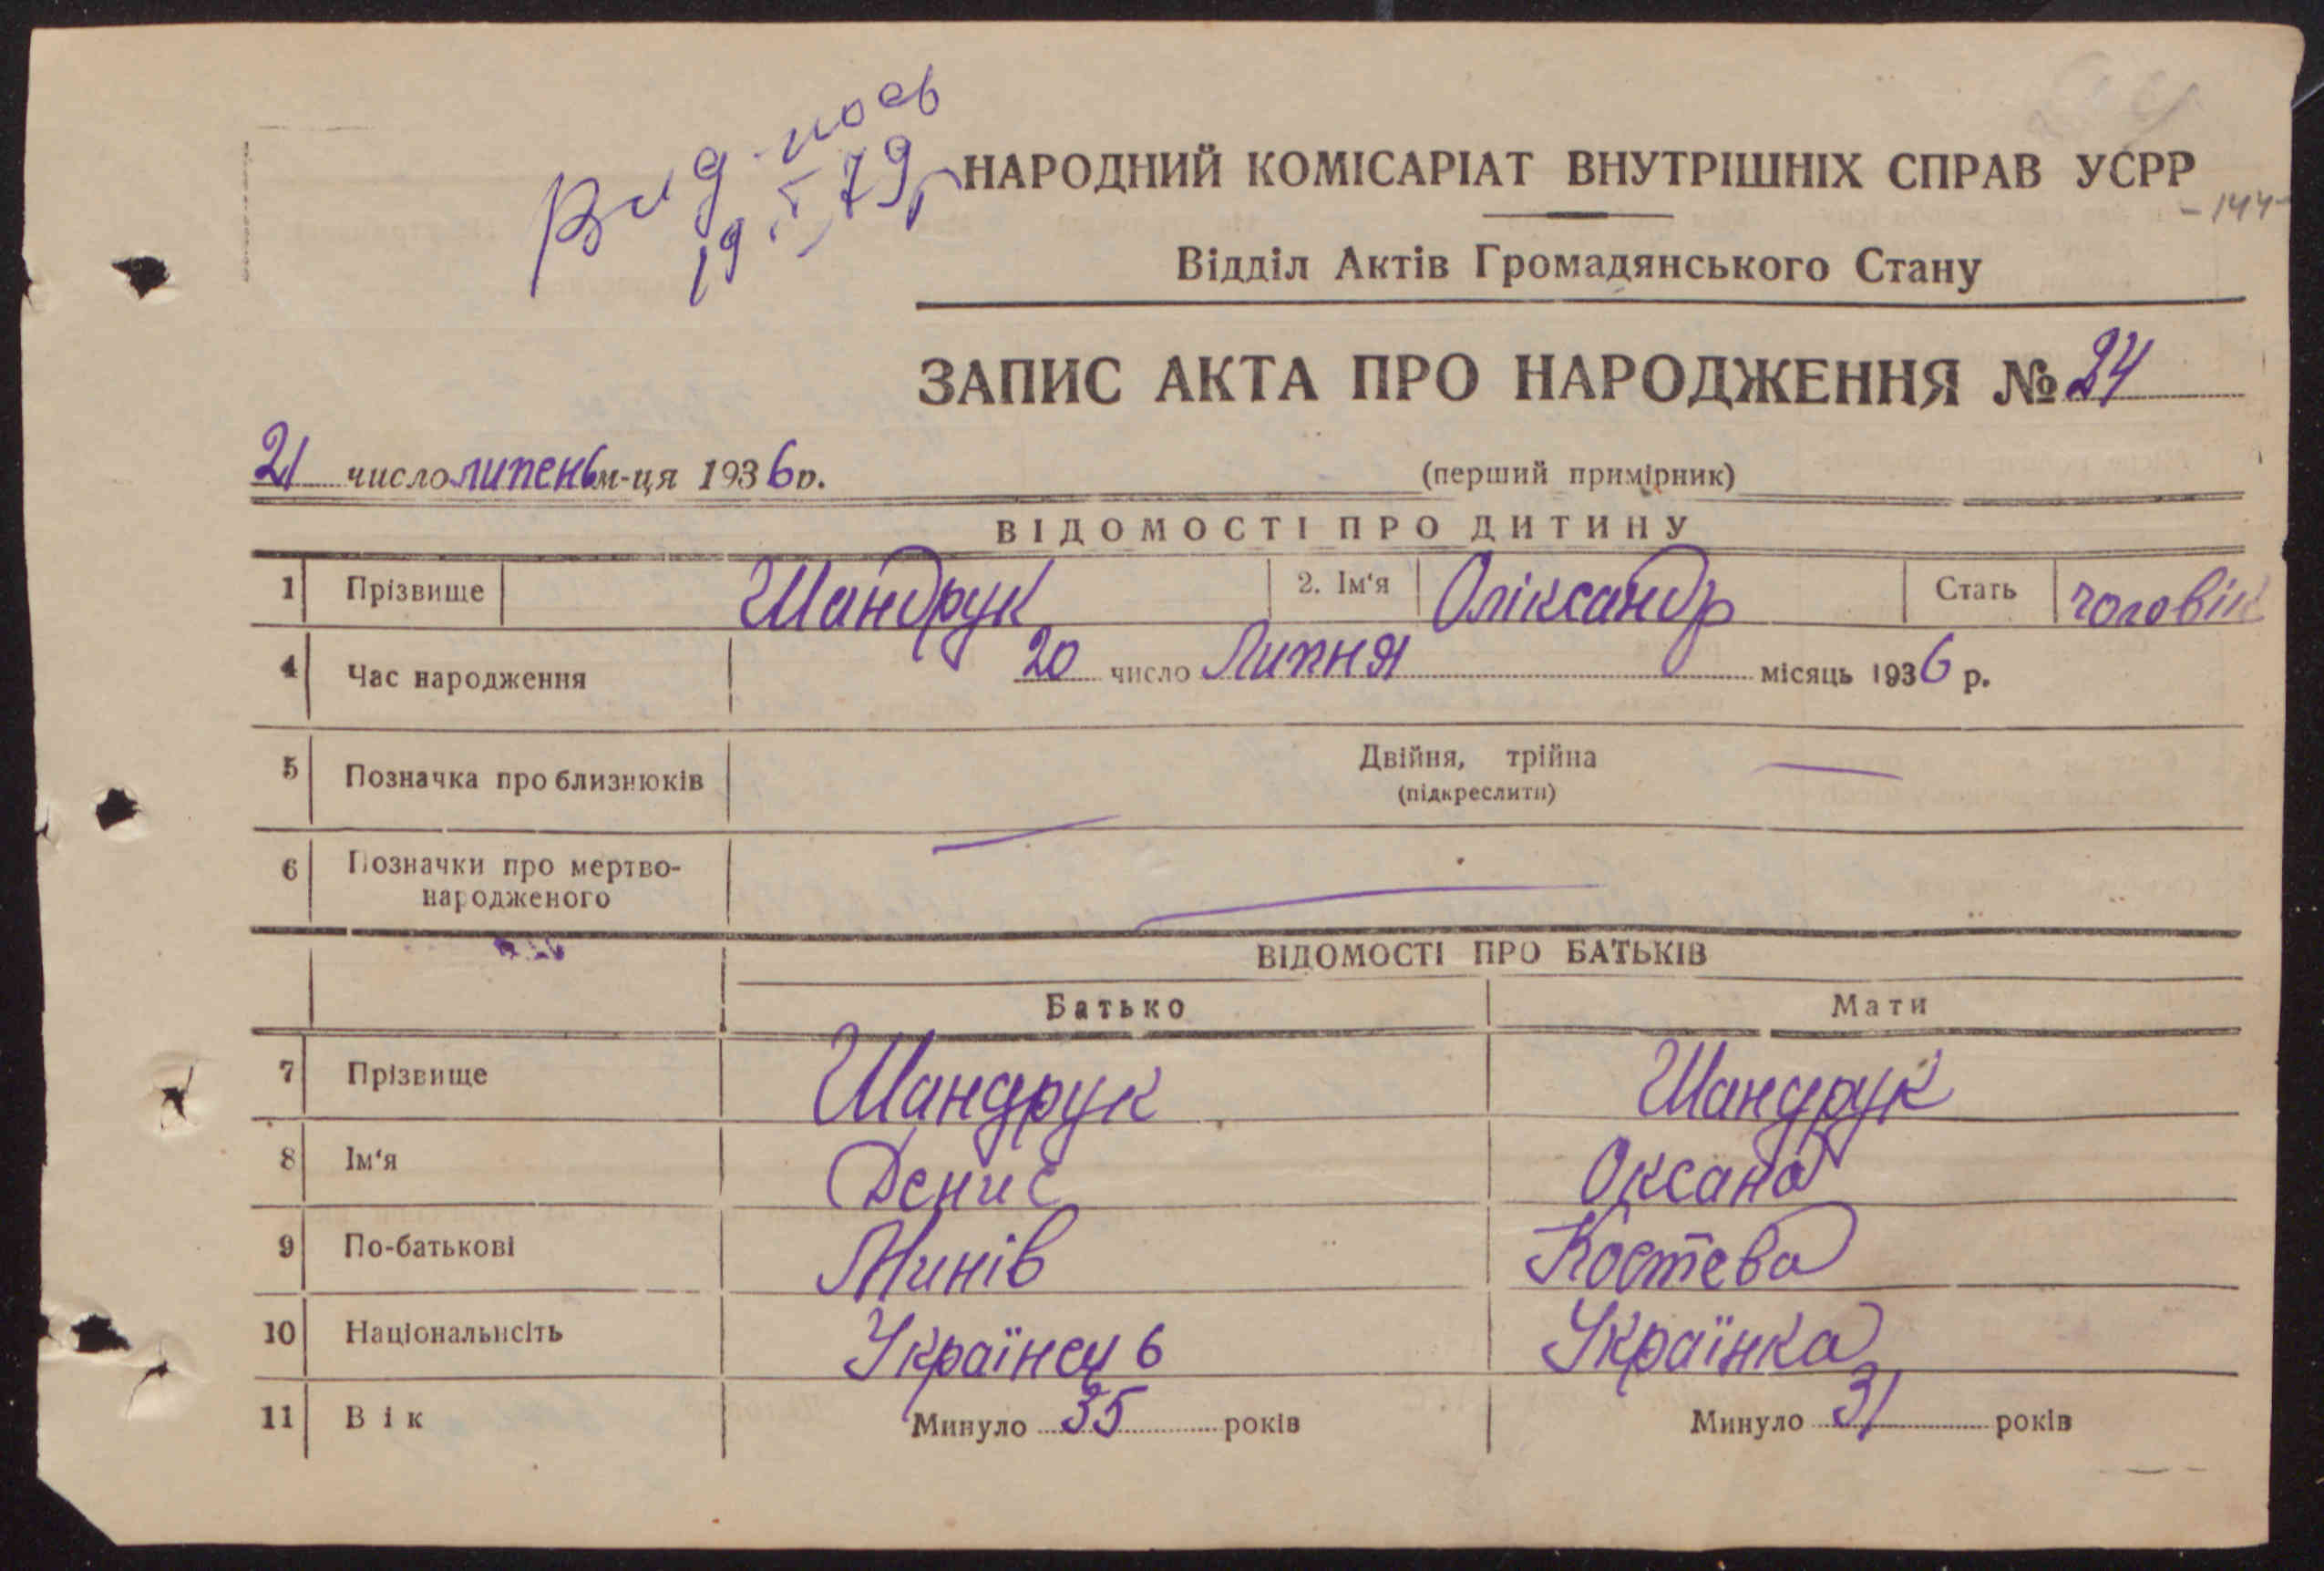 НАРОДНИЙ КОМІСАРІАТ ВНУТРІШНІХ СПРАВ УСРР
-144-
Відділ Актів Громадянського Стану
ЗАПИС АКТА ПРО НАРОДЖЕННЯ № 24
21 число липень м-ця 1936 р.
(перший примірник)
ВІДОМОСТІ ПРО ДИТИНУ
1 Прізвище Шандрук 2. Ім'я Оліксандр Стать чоловік
4 Час народження 20 число Липня місяць 1936 р.
5 Позначка про близнюків Двійня, трійна
(підкреслити)
6 Позначки про мертво-
народженого
ВІДОМОСТІ ПРО БАТЬКІВ
Батько Мати
7 Прізвище Шандрук Шандрук
8 Ім'я Денис Оксана
9 По-батькові Минів Костева
10 Національність Українець Українка
11 Вік Минуло 35 років Минуло 31 років